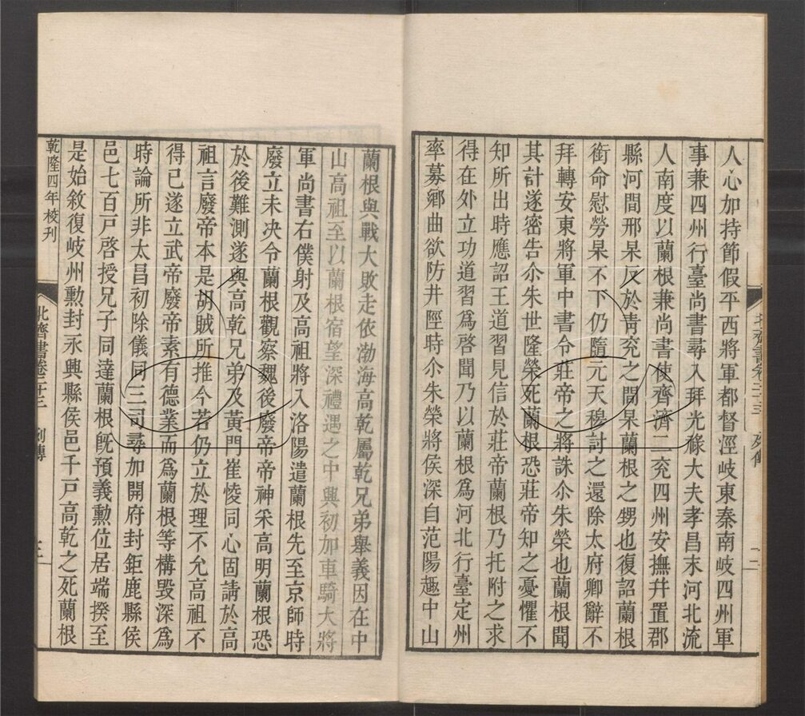 人心加持節假平西將軍都督涇岐東秦南岐四州軍
事兼四州行臺尚書尋入拜光祿大夫孝昌末河北流
人南度以蘭根兼尚書使齊濟二兗四州安撫幷置郡
縣河間邢杲反於青兗之間杲蘭根之甥也復詔蘭根
銜命慰勞杲不下仍隨元天穆討之還除太府卿辭不
拜轉安東將軍中書令莊帝之將誅尒朱榮也蘭根聞
其計遂密告尒朱世隆榮死蘭根恐莊帝知之憂懼不
知所出時應詔王道習見信於莊帝蘭根乃托附之求
得在外立功道習爲啓聞乃以蘭根爲河北行臺定州
率募鄉曲欲防井陘時尒朱榮將侯深自范陽趣中山
蘭根與戰大敗走依渤海高乾屬乾兄弟舉義因在中
山高祖至以蘭根宿望深禮遇之中興初加車騎大將
軍尚書右僕射及高祖將入洛陽遣蘭根先至京師時
廢立未決令蘭根觀察魏後廢帝帝神采高明蘭根恐
於後難測遂與高乾兄弟及黃門崔㥄同心固請於高
祖言廢帝本是胡賊所推今若仍立於理不允高祖不
得已遂立武帝廢帝素有德業而爲蘭根等構毀深爲
時論所非太昌初除儀同三司尋加開府封鉅鹿縣侯
邑七百戶啓授兄子同達蘭根旣預義勳位居端揆至
是始敘復岐州勳封永興縣侯邑千戶高乾之死蘭根
乾隆四年校刊
北齊書卷二十三 列傳